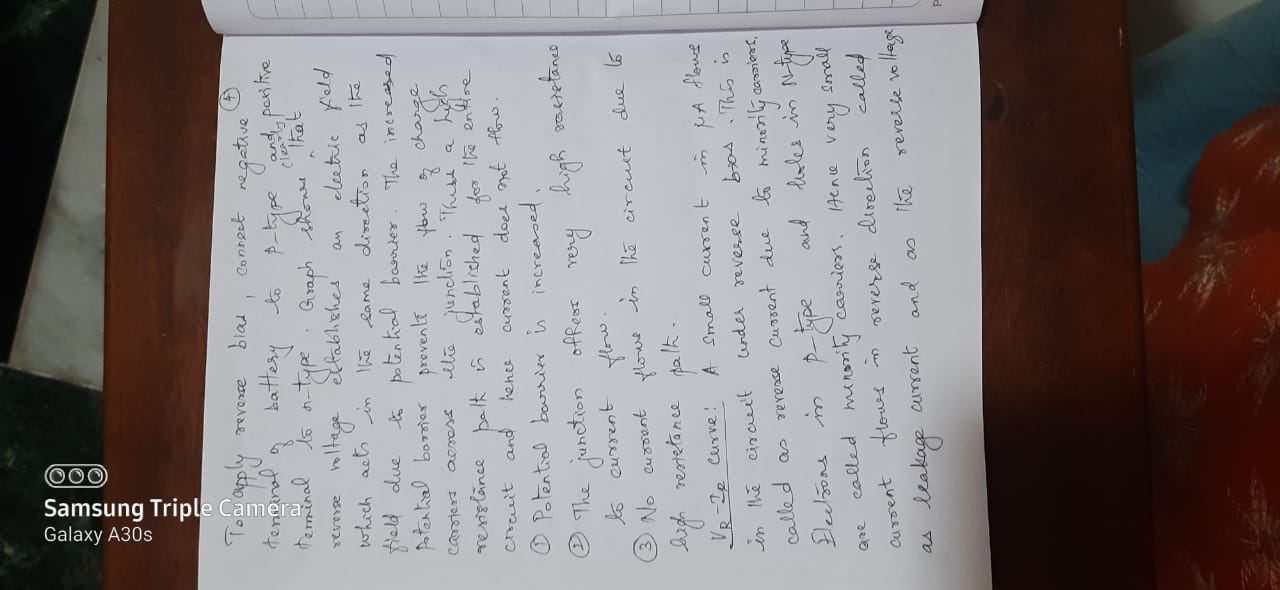 To apply reverse bias, connect negative ④
terminal of battery to p-type and positive
terminal to n-type. Graph clearly shows that
reverse voltage establishes an electric field
which acts in the same direction as the
field due to potential barrier. The increased
potential barrier prevents the flow of charge
carriers across the junction. Thus a high
resistance path is established for the entire
circuit and hence current does not flow.
① Potential barrier is increased.
② The junction offers very high resistance
to current flow.
③ No current flows in the circuit due to
high resistance path.
VR-IR curve: A small current in μA flows
in the circuit under reverse bias. This is
called as reverse current due to minority carriers.
Electrons in P-type and holes in N-type
are called minority carriers. Hence very small
current flows in reverse direction called
as leakage current and as the reverse voltage
Samsung Triple Camera
Galaxy A30s